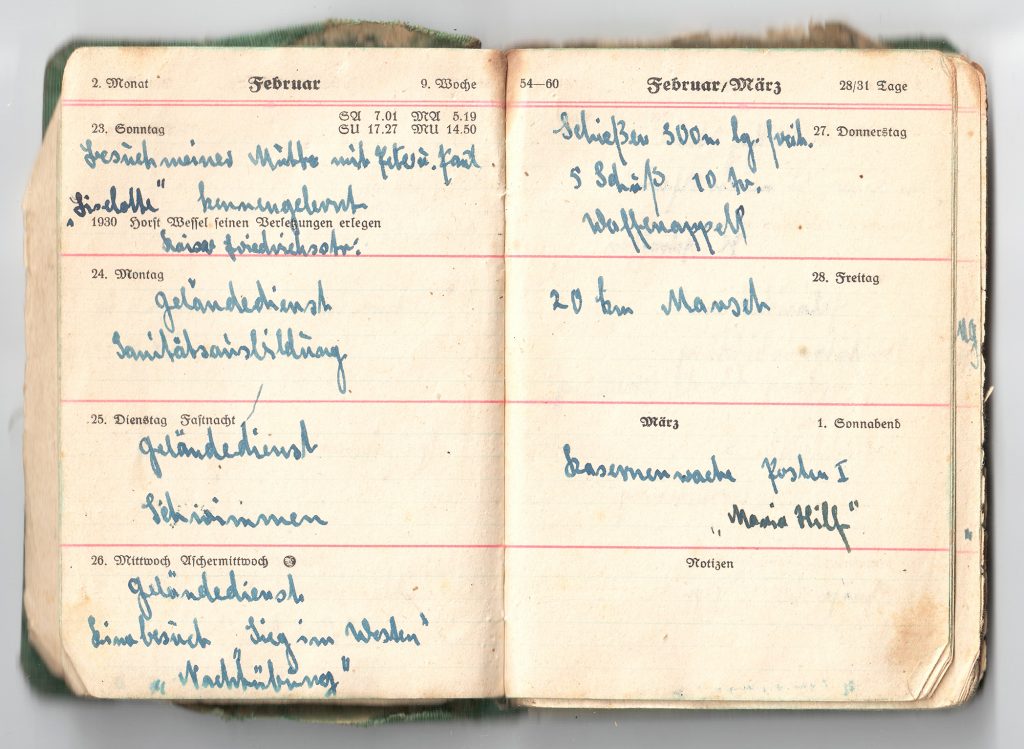 2. Monat Februar 9. Woche
23. Sonntag SA 7.01 MA 5.19
SU 17.27 MU 14.50
Besuch meiner Mutter mit Peter u.
„Liselotte" kennengelernt
1930 Horst Wessel seinen Verletzungen erlegen
Kaiser Friedrichsstr.
24. Montag
Geländedienst
Sanitätsausbildung
25. Dienstag Fastnacht
Geländedienst
Schwimmen
26. Mittwoch Aschermittwoch
Geländedienst
Kinobesuch „Sieg im Westen"
„Nachtübung"
54—60 Februar/März 28/31 Tage
27. Donnerstag
Schießen 300m lg. freih.
5 Schuß 10 
Waffenappell
28. Freitag
20 km Marsch
März 1. Sonnabend
Kasernenwache Posten I
„Maria Hilf"
Notizen